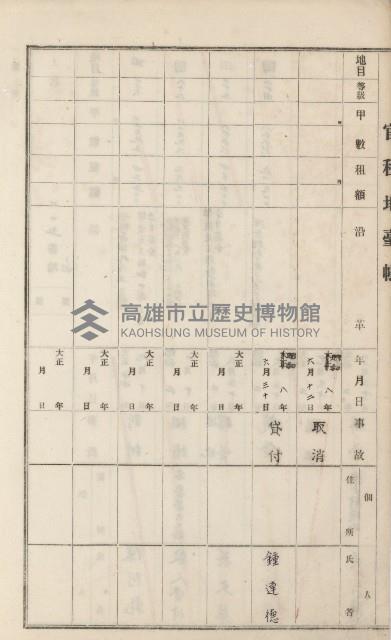 官租地臺帳
地目
等級
甲數
租額
沿革
年月日
事故
佃人
住所
氏名
昭和八年六月十二日
取消
昭和八年六月三十日
貸付
鍾達德
大正 年 月 日
大正 年 月 日
大正 年 月 日
大正 年 月 日
大正 年 月 日
高雄市立歷史博物館
KAOHSIUNG MUSEUM OF HISTORY